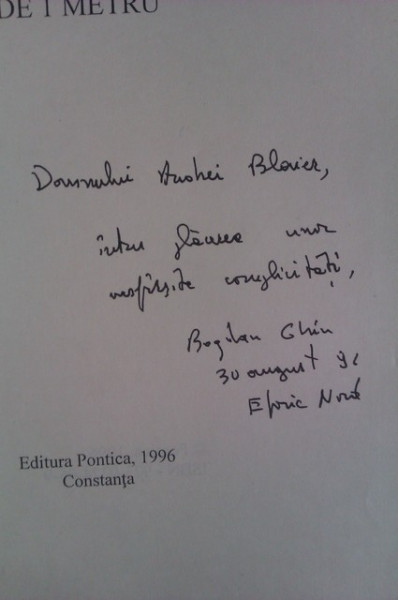 DE 1 METRU
Domnului Andrei Blaier,
întru
unor
nesfîrșite complicități,
Bogdan Ghiu
30 august 96
Eforie Nord
Editura Pontica, 1996
Constanţa